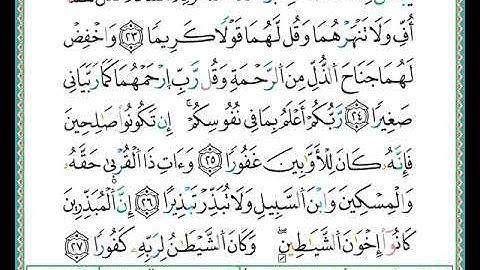 أُفٍّ وَلَا تَنْهَرْهُمَا وَقُل لَّهُمَا قَوْلًا كَرِيمًا ٢٣ وَاخْفِضْ
لَهُمَا جَنَاحَ الذُّلِّ مِنَ الرَّحْمَةِ وَقُل رَّبِّ ارْحَمْهُمَا كَمَا رَبَّيَانِي
صَغِيرًا ٢٤ رَّبُّكُمْ أَعْلَمُ بِمَا فِي نُفُوسِكُمْ ۚ إِن تَكُونُوا صَالِحِينَ
فَإِنَّهُ كَانَ لِلْأَوَّابِينَ غَفُورًا ٢٥ وَءَاتِ ذَا الْقُرْبَىٰ حَقَّهُ
وَالْمِسْكِينَ وَابْنَ السَّبِيلِ وَلَا تُبَذِّرْ تَبْذِيرًا ٢٦ إِنَّ الْمُبَذِّرِينَ
كَانُوا إِخْوَانَ الشَّيَاطِينِ ۖ وَكَانَ الشَّيْطَٰنُ لِرَبِّهِ كَفُورًا ٢٧